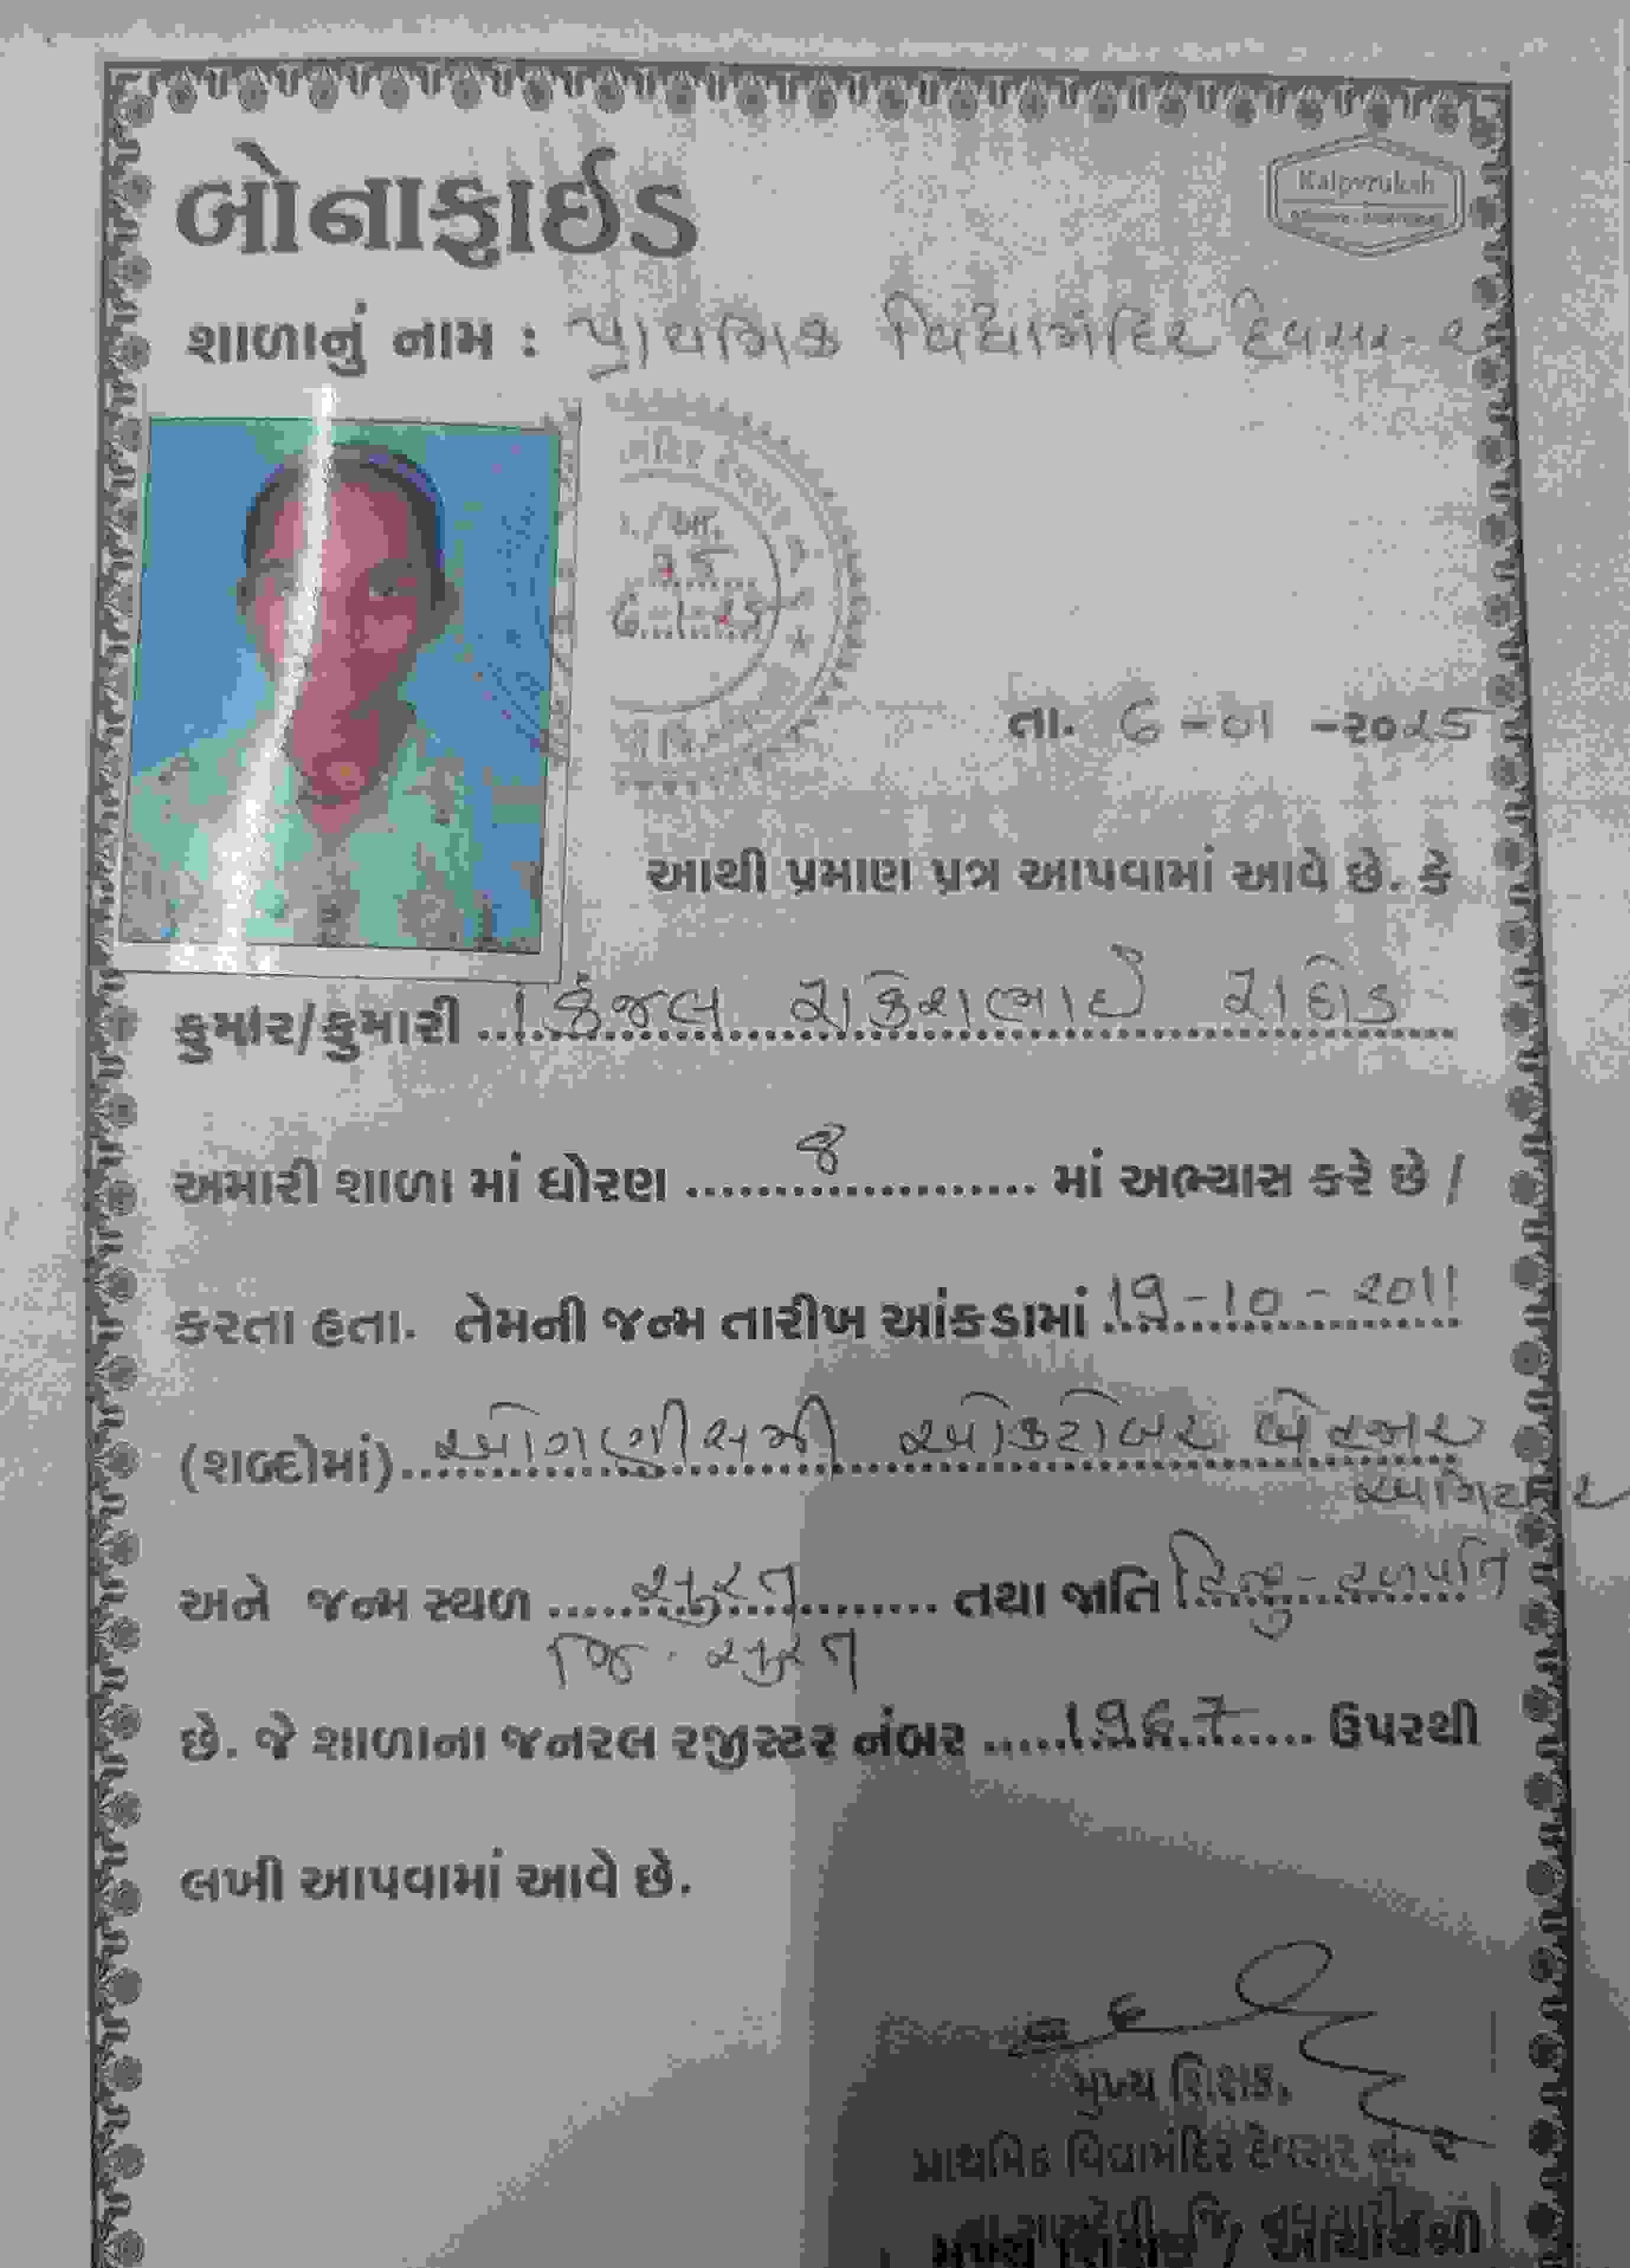 બોનાફાઈડ
Kalpvruksh
શાળાનું નામ : પ્રાથમિક વિદ્યામંદિર દેવસર-૨
6-1-25
તા. 6-01-૨૦25
આથી પ્રમાણ પત્ર આપવામાં આવે છે. કે
કુમાર/કુમારી કિંજલ રાકેશભાઈ રાઠોડ
અમારી શાળા માં ધોરણ 8 માં અભ્યાસ કરે છે /
કરતા હતા. તેમની જન્મ તારીખ આંકડામાં 19-10-2011
(શબ્દોમાં) ઓગણીસમી ઓક્ટોબર બે હજાર
અગિયાર
અને જન્મ સ્થળ સુરત તથા જાતિ હિન્દુ-હળપતિ
જિ. સુરત
છે. જે શાળાના જનરલ રજીસ્ટર નંબર 1967 ઉપરથી
લખી આપવામાં આવે છે.
મુખ્ય શિક્ષક,
પ્રાથમિક વિદ્યામંદિર દેવસર નં. ૨
મુખ્ય શિક્ષક / આચાર્યશ્રી